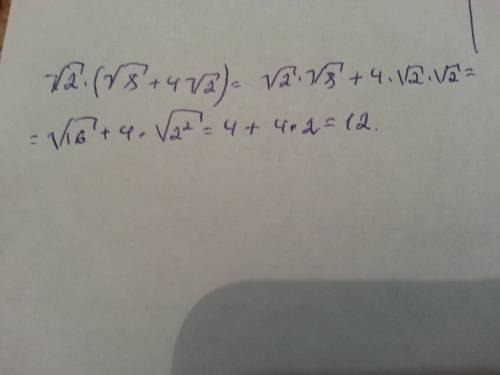 √2·(√8+4√2)= √2·√8+4·√2·√2=
=√16+4·√2²=4+4·2=12.